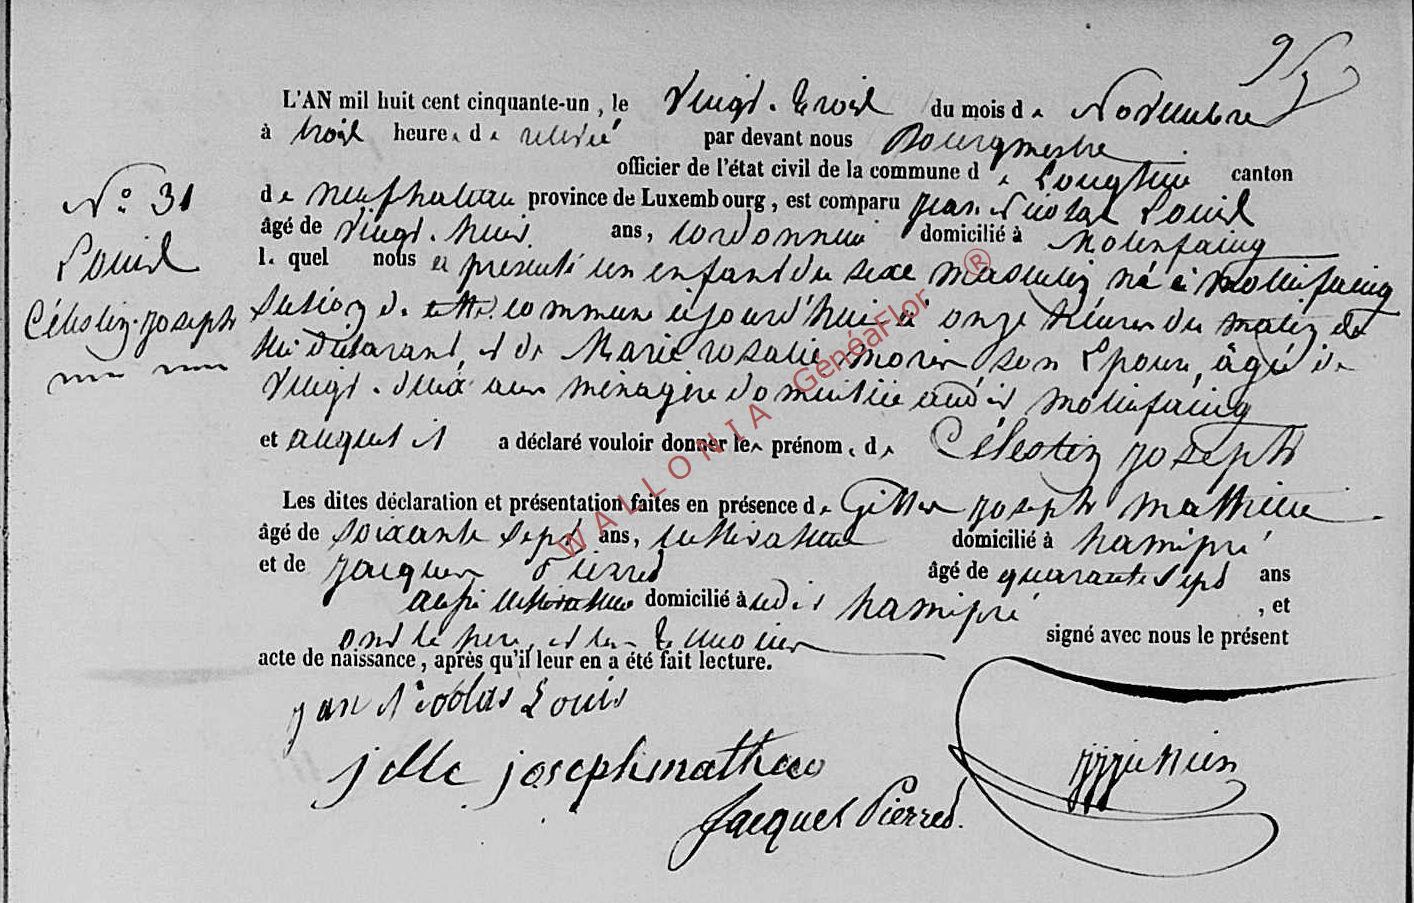 L'AN mil huit cent cinquante-un, le vingt-trois du mois de Novembre
à trois heures de relevée par devant nous Bourgmestre
officier de l'état civil de la commune de Longlier canton
N° 31
de neufchateau province de Luxembourg, est comparu jean nicolas Louis
âgé de vingt-huit ans, cordonnier domicilié à Molinfaing
Louis
lequel nous a presenté un enfant du sexe masculin né à mollinfaing
Célestin-joseph
section de cette commune ajourd'hui à onze heures du matin de
lui déclarant, et de Marie rosalie morin son Epouse, âgée de
vingt-deux ans ménagère domiciliée audit molinfaing
et auquel il a déclaré vouloir donner les prénoms de Célestin joseph
Les dites déclaration et présentation faites en présence de Gilles joseph mathieu
âgé de soixante sept ans, cultivateur domicilié à hamipré
et de jacques Pierred âgé de quarante sept ans
aussi cultivateur domicilié audit hamipré, et
ont le père, et les témoins signé avec nous le présent
acte de naissance, après qu'il leur en a été fait lecture.
jean Nicolas Louis
jille joseph mathieu
Jacques Pierred.
WALLONIA GénéaFlor ®